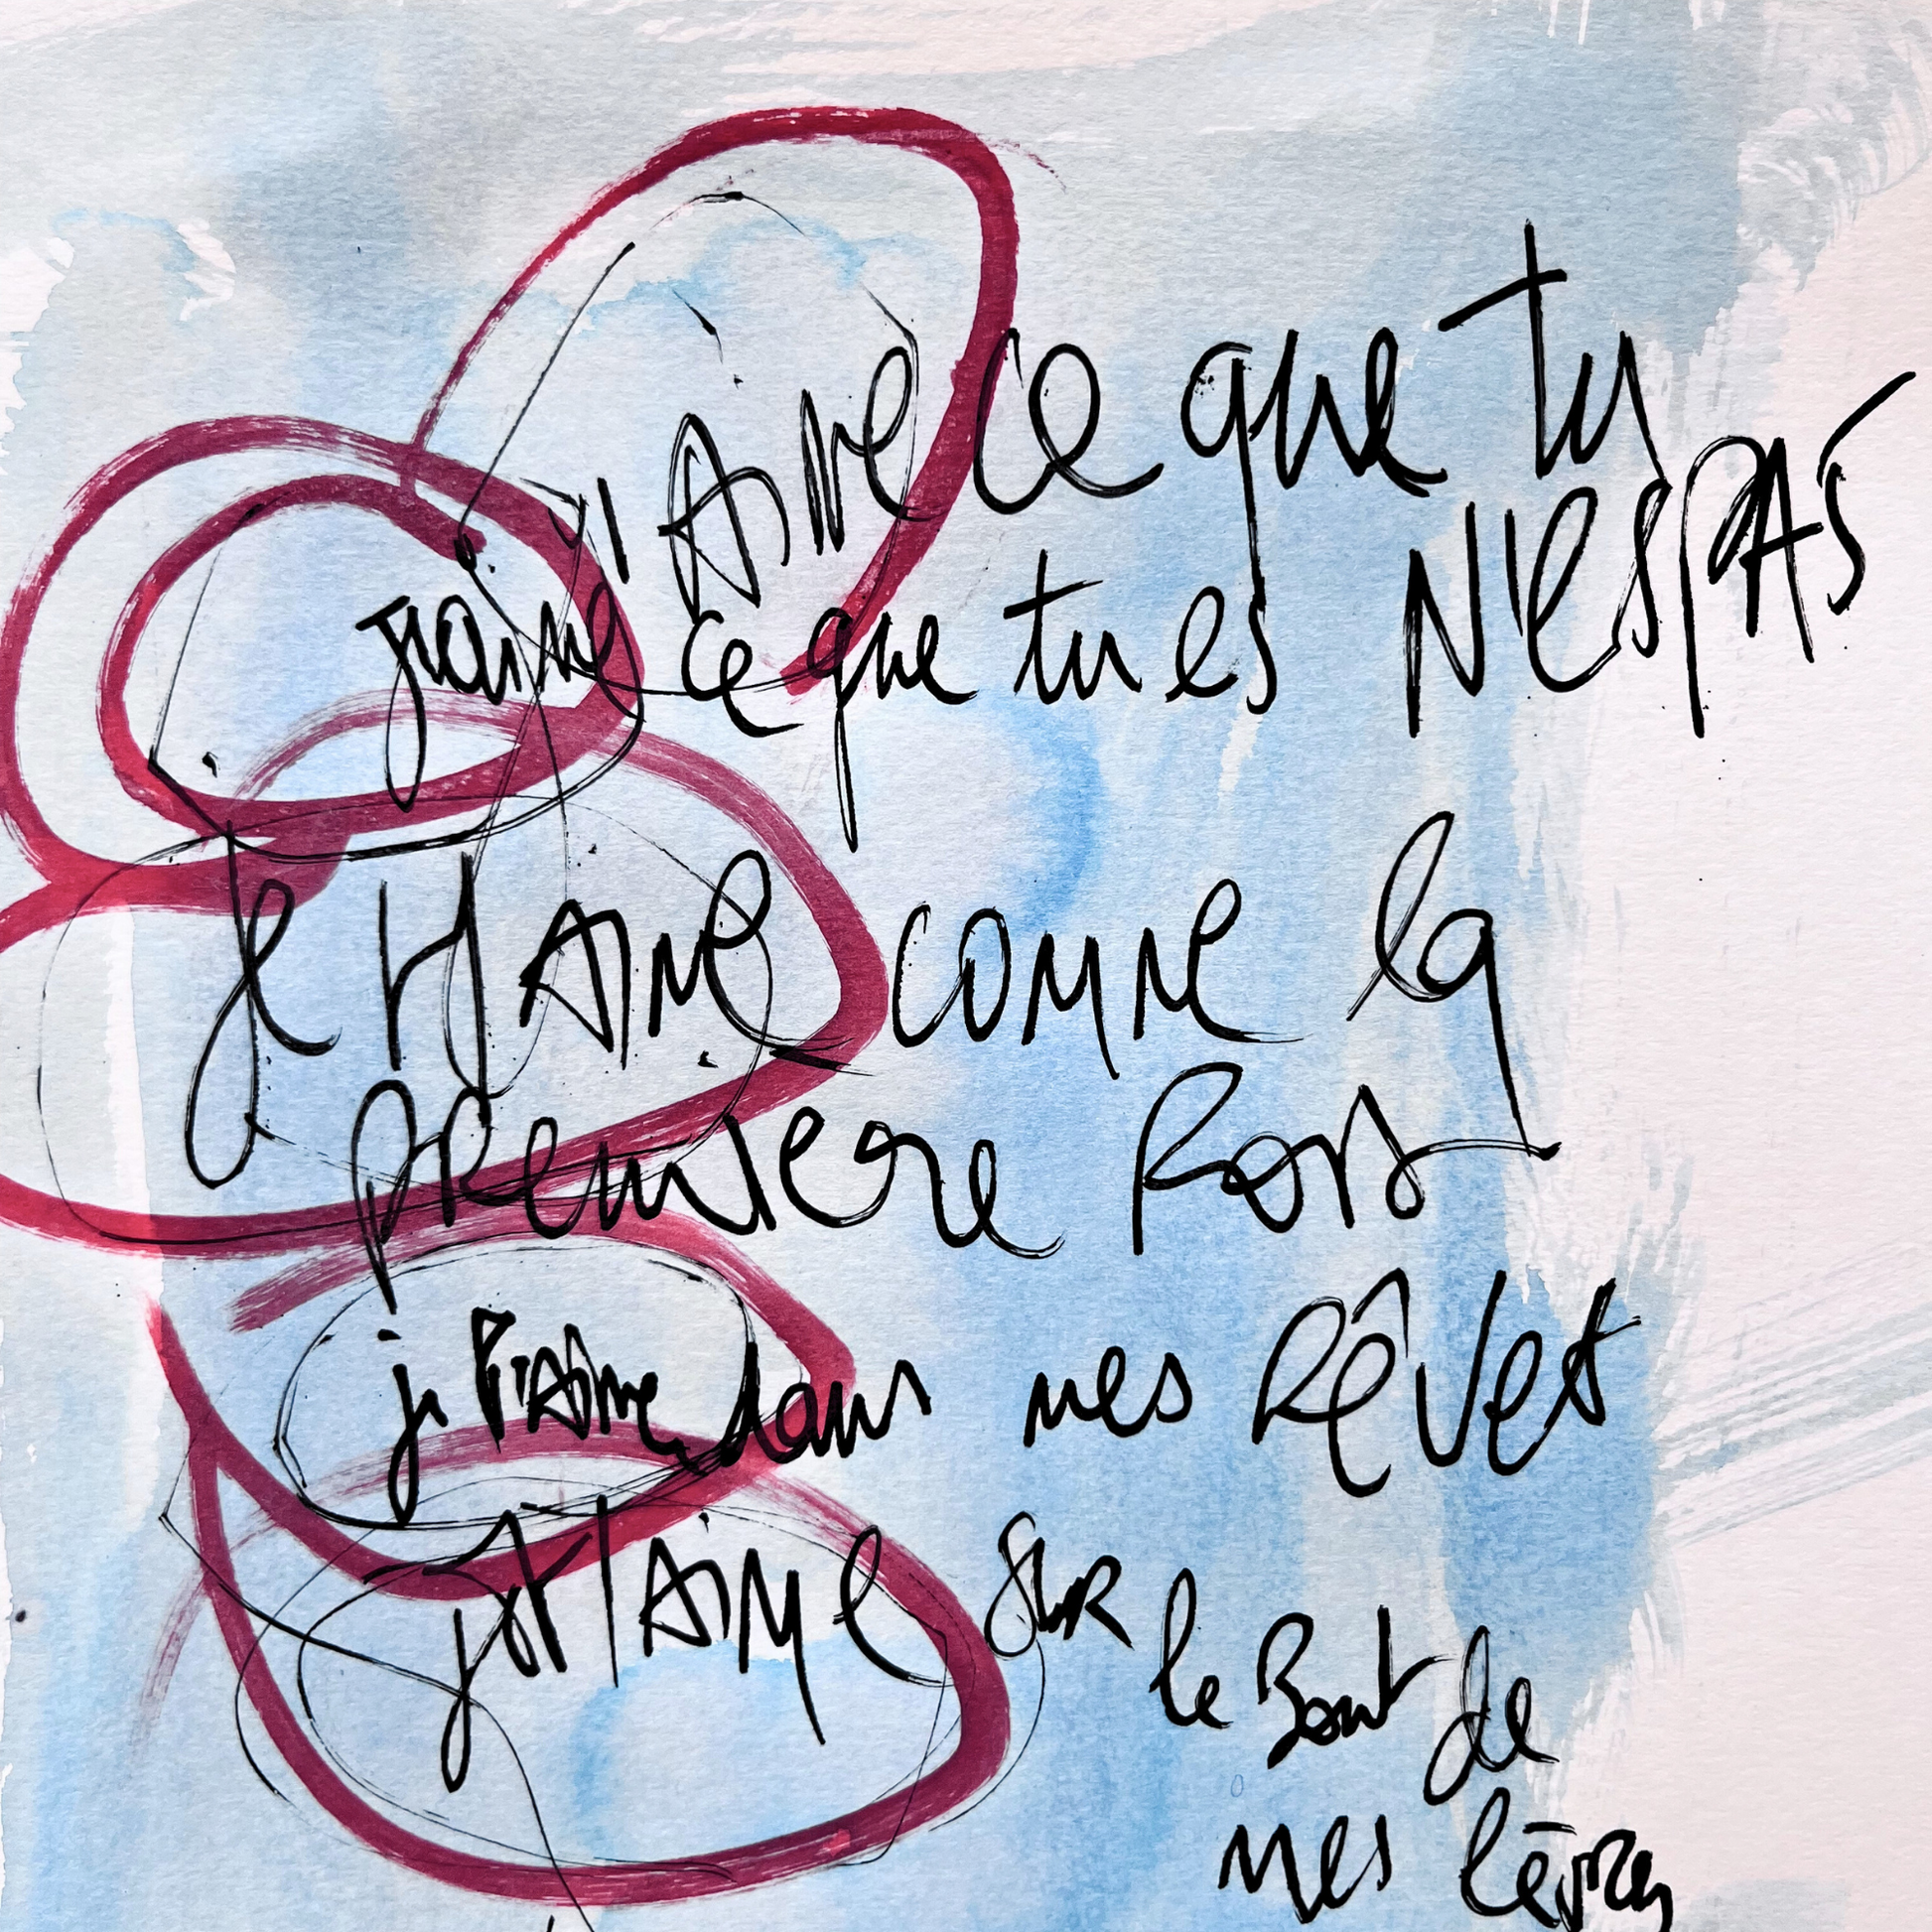 j'AiMe ce que tu
N'es PAS
j'aime ce que tu es
je t'Aime comme la
première fois
je t'Aime dans mes Rêves
je t'AiMe sur
le Bout de
mes lèvres